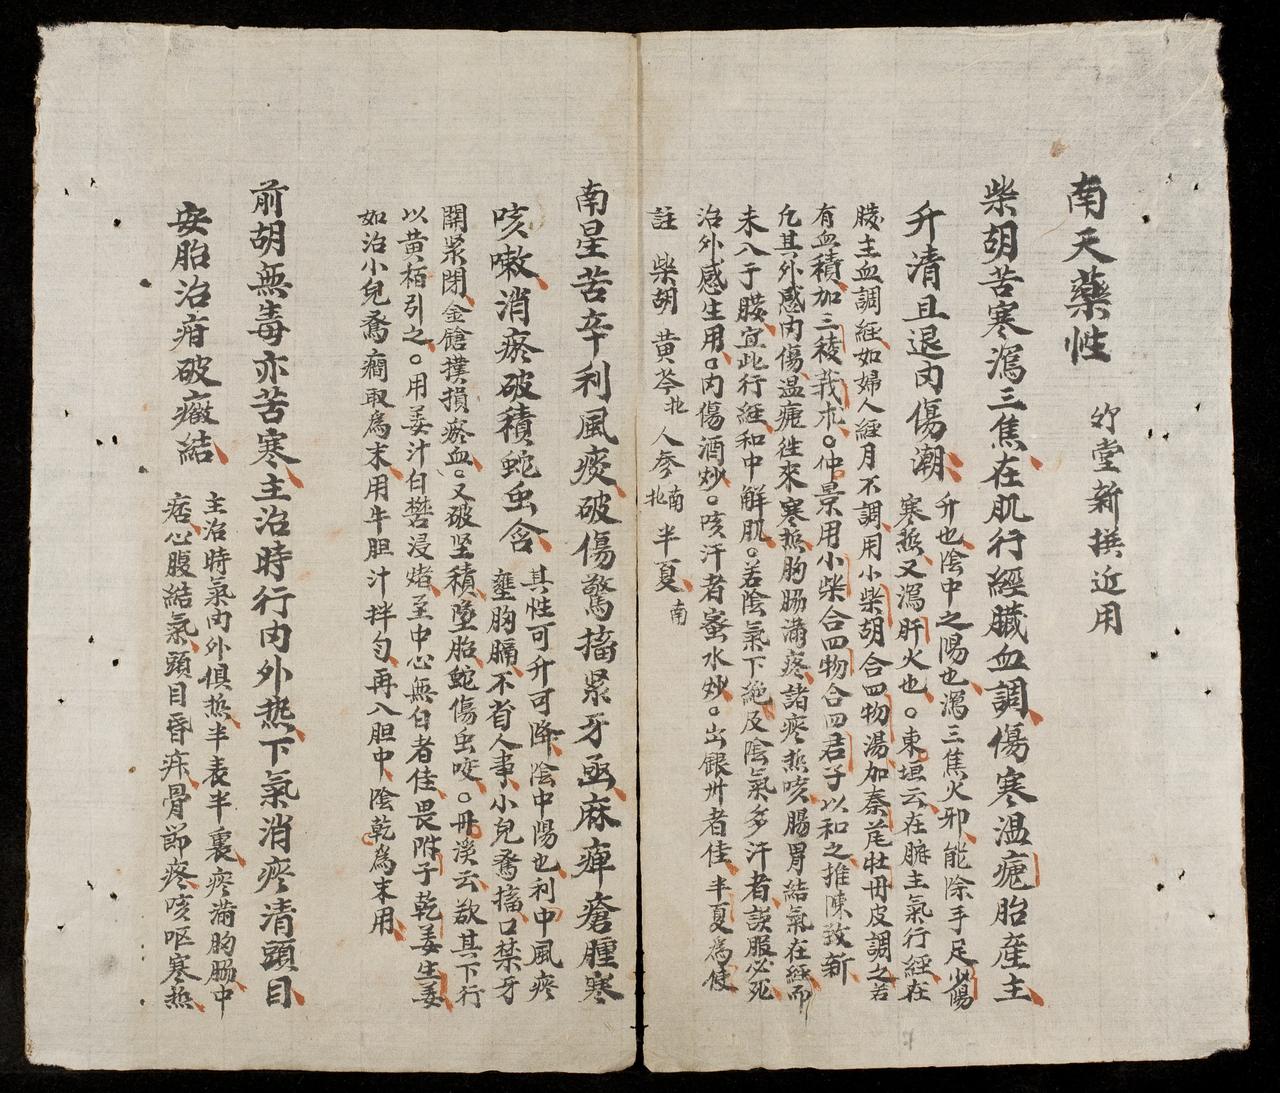 南天藥性 竹堂新撰近用
柴胡苦寒瀉三焦在肌行經臟血調傷寒温瘧胎産主
升清且退内傷潮
升也陰中之陽也瀉三焦火邪能除手足少陽
寒热又瀉肝火也○東垣云在臟主氣行經在
肌主血調經如婦人經月不調用小柴胡合四物湯加秦艽牡丹皮調之若
有血積加三稜莪朮○仲景用小柴合四物合四君子以和之推陳致新
凢其外感内傷温瘧徃來寒热胸腸滿疼諸疼热咳腸胃結氣在經而
未入于臟宜此行經和中解肌○若陰氣下絶及陰氣多汗者誤服必死
治外感生用○内傷酒炒○咳汗者蜜水炒○出銀州者佳半夏為使
註 柴胡 黄芩北 人參南北 半夏南
南星苦辛利風痰破傷驚搐緊牙亟麻痺瘡腫寒
咳嗽消瘀破積蛇虫含
其性可升可降陰中陽也利中風疼
壅胸膈不省人事小兒驚搐口禁牙
關緊閉金鎗撲損瘀血○又破坚積墮胎蛇傷虫咬○丹溪云欲其下行
以黄栢引之○用姜汁白礬浸煮至中心無白者佳畏附子乾姜生姜
如治小兒驚癎取為末用牛胆汁拌匀再入胆中陰乾為末用
前胡無毒亦苦寒主治時行内外热下氣消疼清頭目
安胎治疳破癥結
主治時氣内外俱热半表半裏疼滿胸腸中
痞心腹結氣頭目昏痳骨節疼咳呕寒热